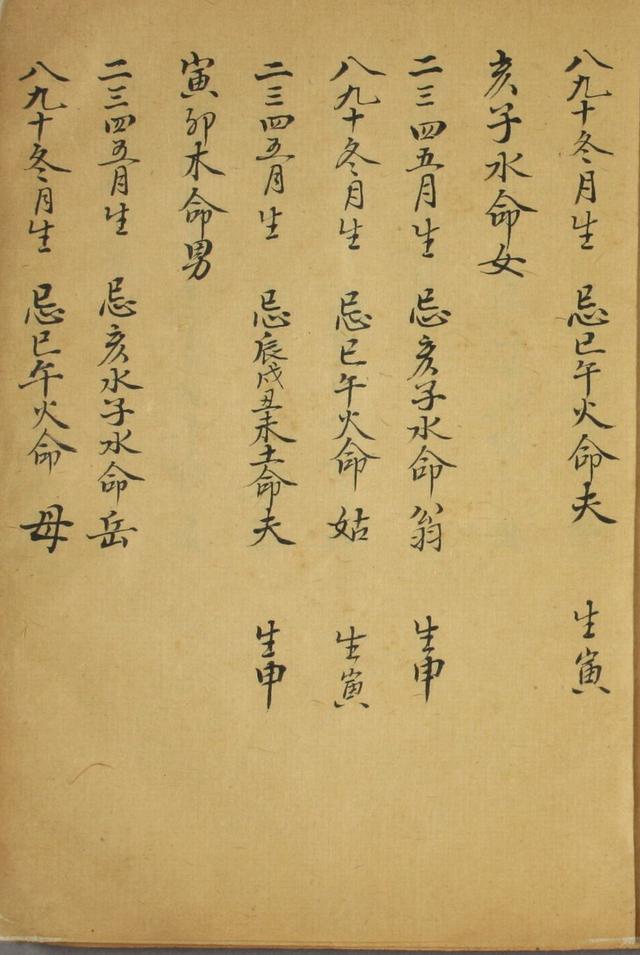 八九十冬月生 忌巳午火命夫 生寅
亥子水命女
二三四五月生 忌亥子水命翁 生申
八九十冬月生 忌巳午火命姑 生寅
二三四五月生 忌辰戌丑未土命夫 生申
寅卯木命男
二三四五月生 忌亥水子水命岳
八九十冬月生 忌巳午火命母